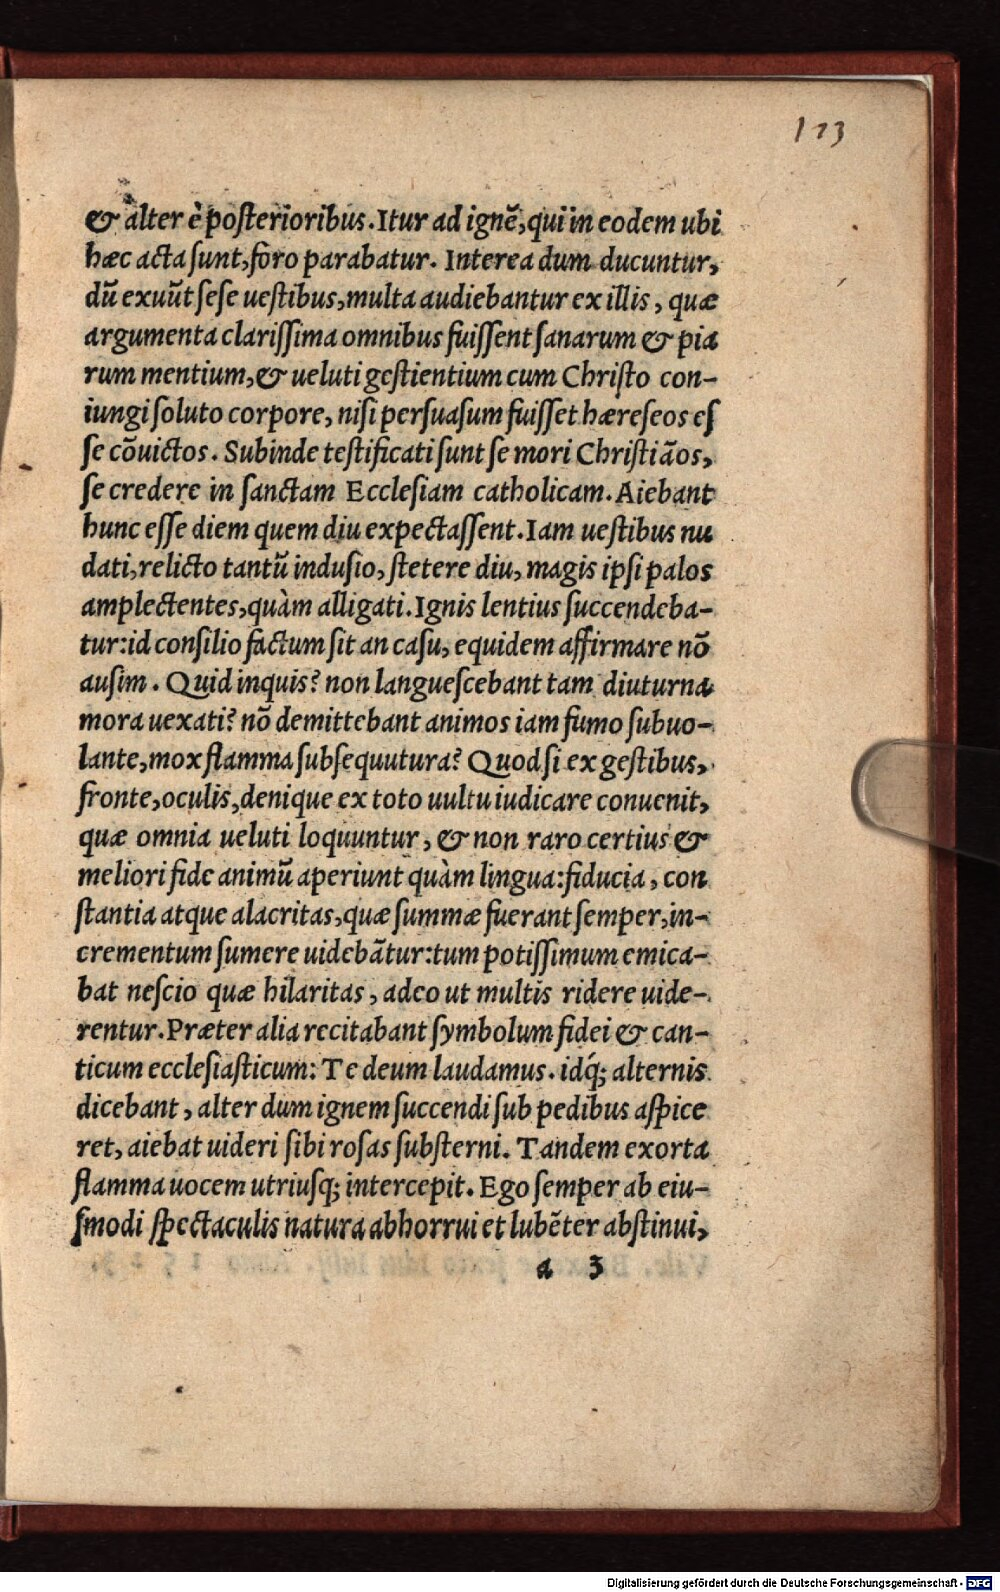 173
& alter è posterioribus. Itur ad ignẽ, qui in eodem ubi
hæc acta sunt, foro parabatur. Interea dum ducuntur,
dũ exuũt sese uestibus, multa audiebantur ex illis, quæ
argumenta clarissima omnibus fuissent sanarum & pia
rum mentium, & ueluti gestientium cum Christo con-
iungi soluto corpore, nisi persuasum fuisset hæreseos es
se cõuictos. Subinde testificati sunt se mori Christiãos,
se credere in sanctam Ecclesiam catholicam. Aiebant
hunc esse diem quem diu expectassent. Iam uestibus nu
dati, relicto tantũ indusio, stetere diu, magis ipsi palos
amplectentes, quàm alligati. Ignis lentius succendeba-
tur: id consilio factum sit an casu, equidem affirmare nõ
ausim. Quid inquis? non languescebant tam diuturna
mora uexati? nõ demittebant animos iam fumo subuo-
lante, mox flamma subsequutura? Quod si ex gestibus,
fronte, oculis, denique ex toto uultu iudicare conuenit,
quæ omnia ueluti loquuntur, & non raro certius &
meliori fide animũ aperiunt quàm lingua: fiducia, con
stantia atque alacritas, quæ summæ fuerant semper, in-
crementum sumere uidebãtur: tum potissimum emica-
bat nescio quæ hilaritas, adeo ut multis ridere uide-
rentur. Præter alia recitabant symbolum fidei & can-
ticum ecclesiasticum: Te deum laudamus. idq́; alternis
dicebant, alter dum ignem succendi sub pedibus aspice
ret, aiebat uideri sibi rosas substerni. Tandem exorta
flamma uocem utriusq; intercepit. Ego semper ab eiu-
smodi spectaculis natura abhorrui et lubẽter abstinui,
a 3
Digitalisierung gefördert durch die Deutsche Forschungsgemeinschaft - DFG